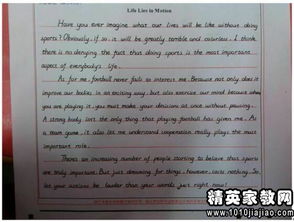 Life Lies in Motion
Have you ever imagine what our lives will be like without doing
sports? Obviously, if so, it will be greatly terrible and colorless. I think
there is no denying the fact that doing sports is the most important
aspect of everybody's life.
As for me, football never fails to interest me. Because not only does it
improve our bodies in an exciting way, but also exercise our mind because when
you are playing it, you must make your decisions at once without pausing.
A strong body isn't the only thing that playing football has given me. As
a team game, it also let me understand cooperation really plays the most
important role.
There's an increasing number of people starting to believe that sports
are truly important. But just dreaming for things, however, costs nothing. So
let your actions be louder than your words just right now!
精英家教网
www.1010jiajiao.com